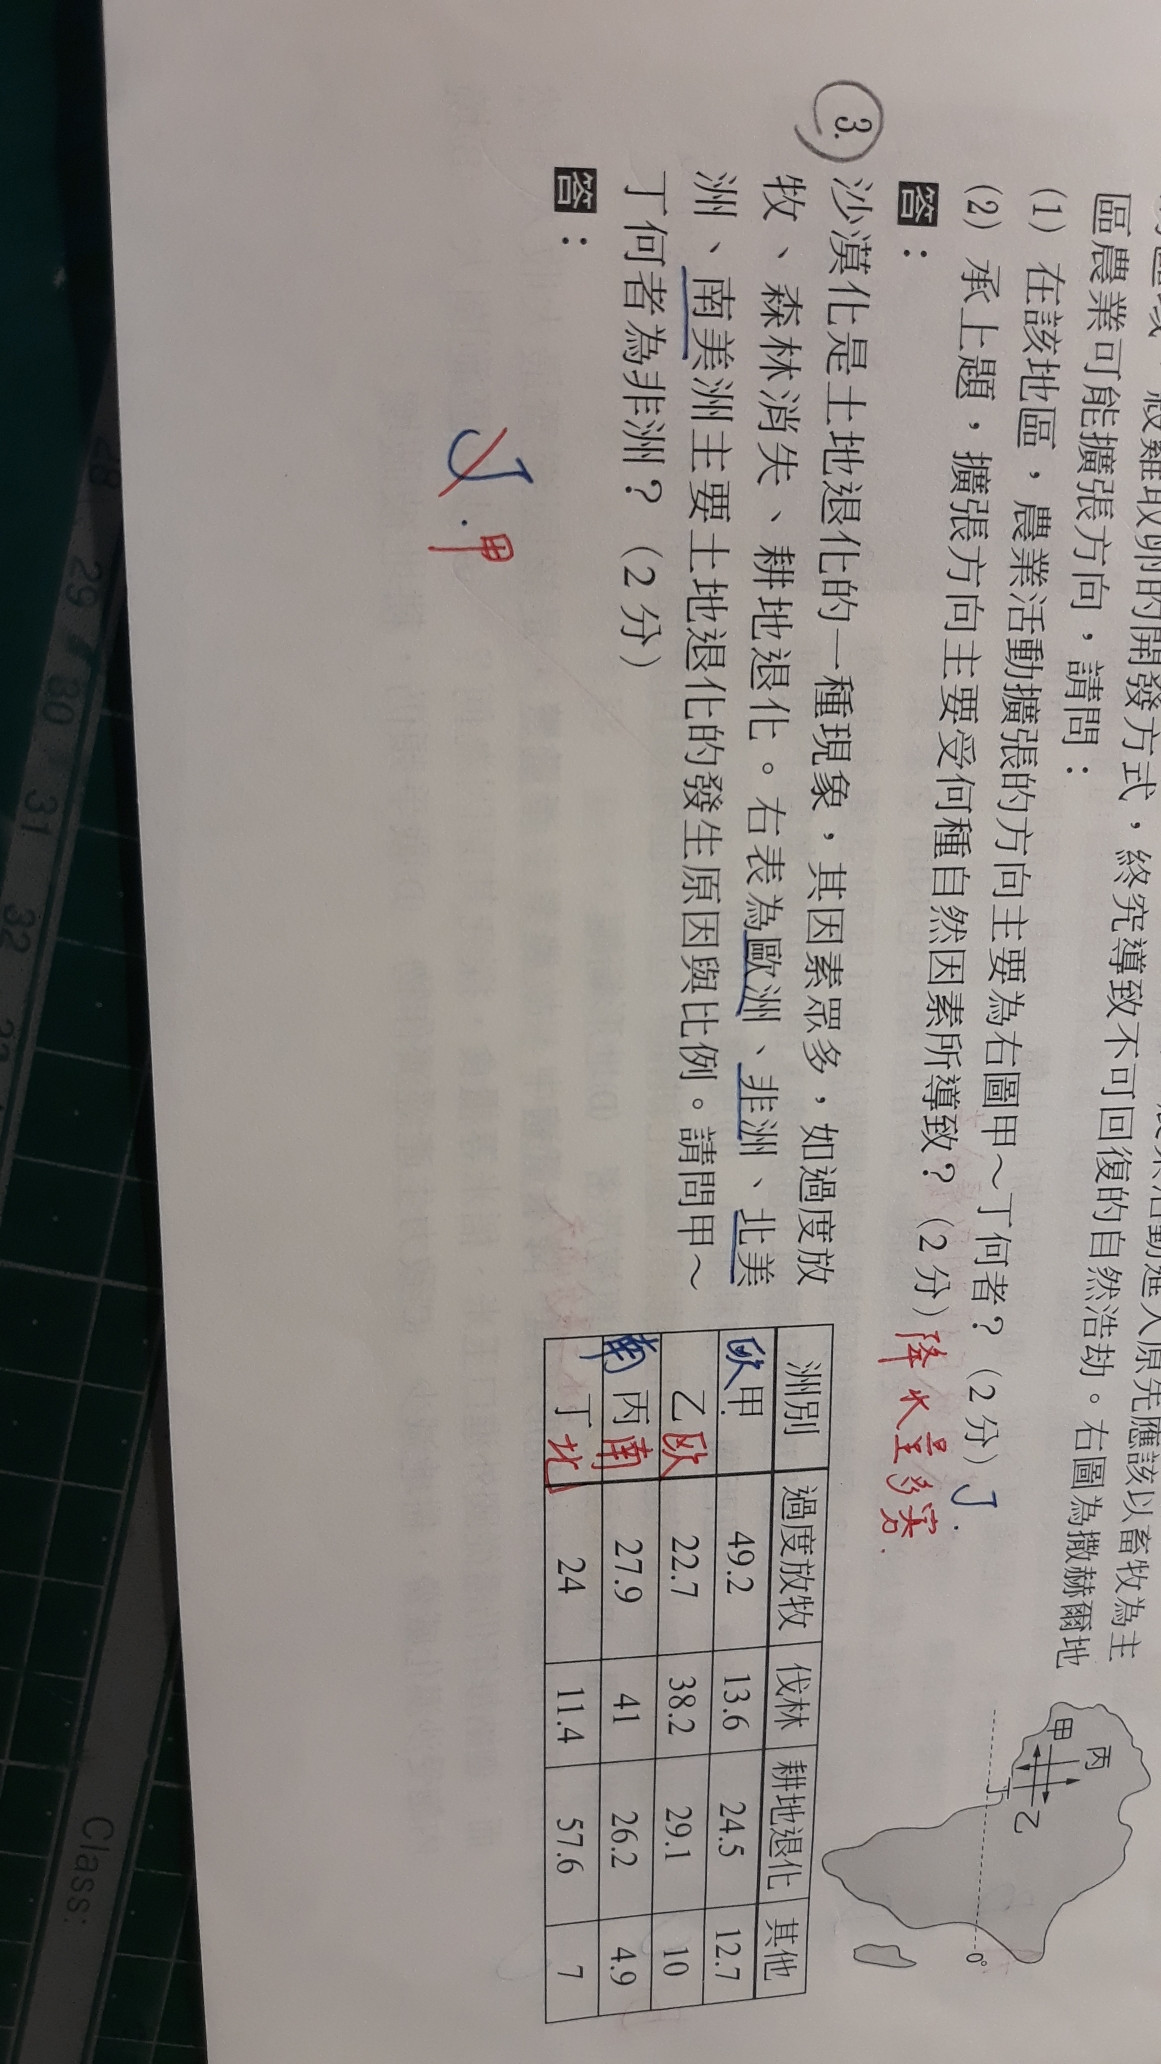 區農業可能擴張方向，請問：
(1) 在該地區，農業活動擴張的方向主要為右圖甲～丁何者？（2分）丁.
(2) 承上題，擴張方向主要受何種自然因素所導致？（2分）降水量多寡.
答：
甲
乙
丙
丁
0°
3. 沙漠化是土地退化的一種現象，其因素眾多，如過度放
牧、森林消失、耕地退化。右表為歐洲、非洲、北美
洲、南美洲主要土地退化的發生原因與比例。請問甲～
丁何者為非洲？（2分）
答：
丁.甲
洲別 過度放牧 伐林 耕地退化 其他
歐 甲 49.2 13.6 24.5 12.7
乙 歐 22.7 38.2 29.1 10
南 丙 南 27.9 41 26.2 4.9
丁 北 24 11.4 57.6 7
28 29 30 31 32
Class: